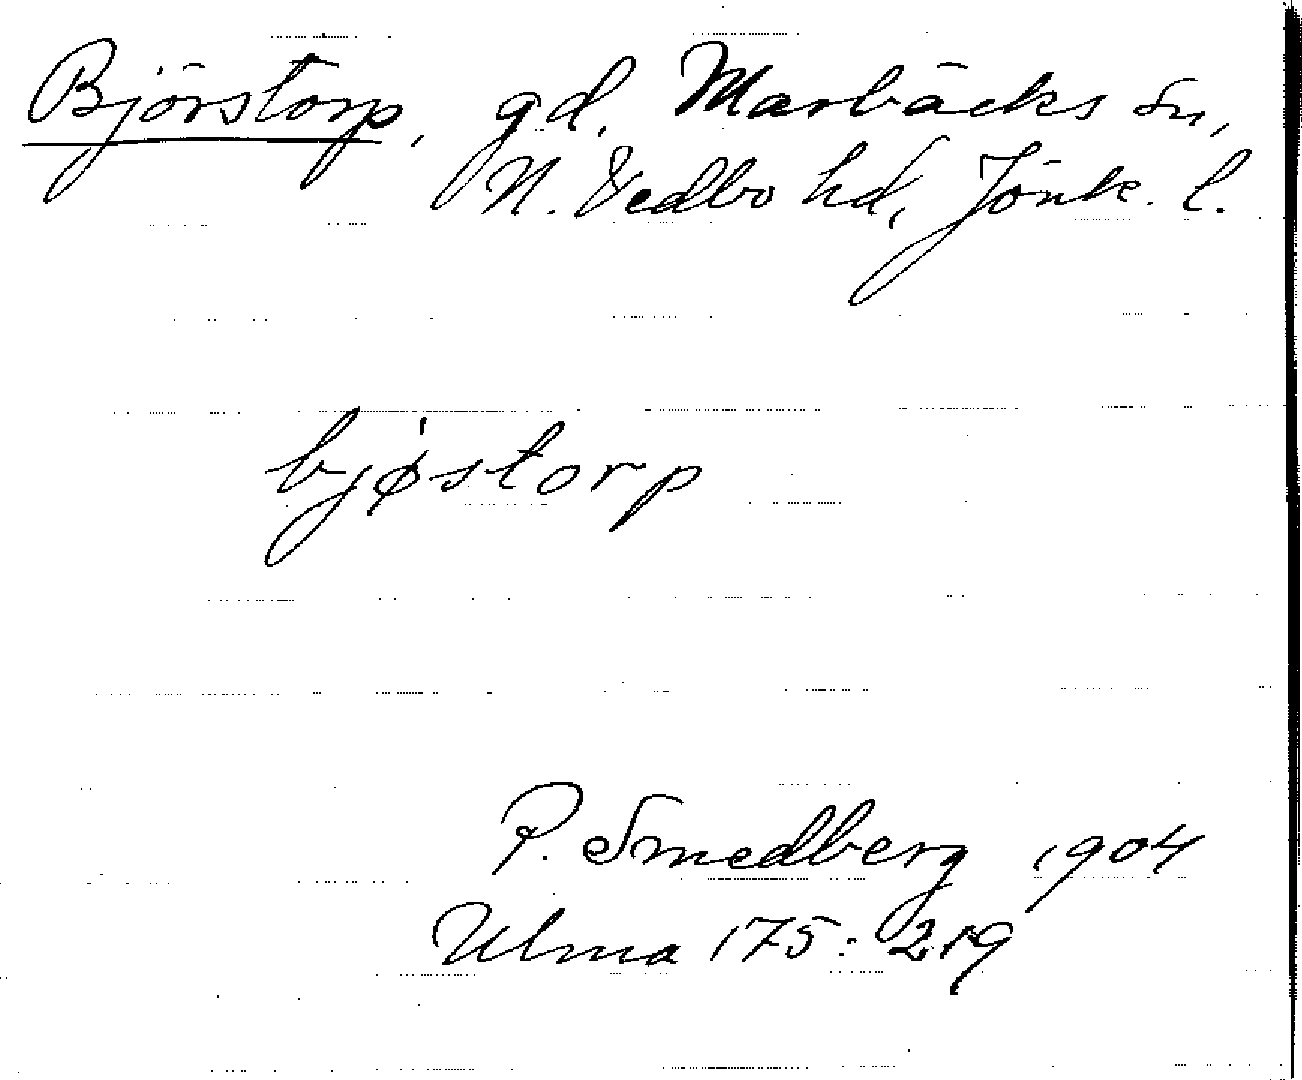 Björstorp, gd, Marbäcks sn,
N. Vedbo hd, Jönk. l.
bjøstorp
P. Smedberg 1904
Ulma 175: 219